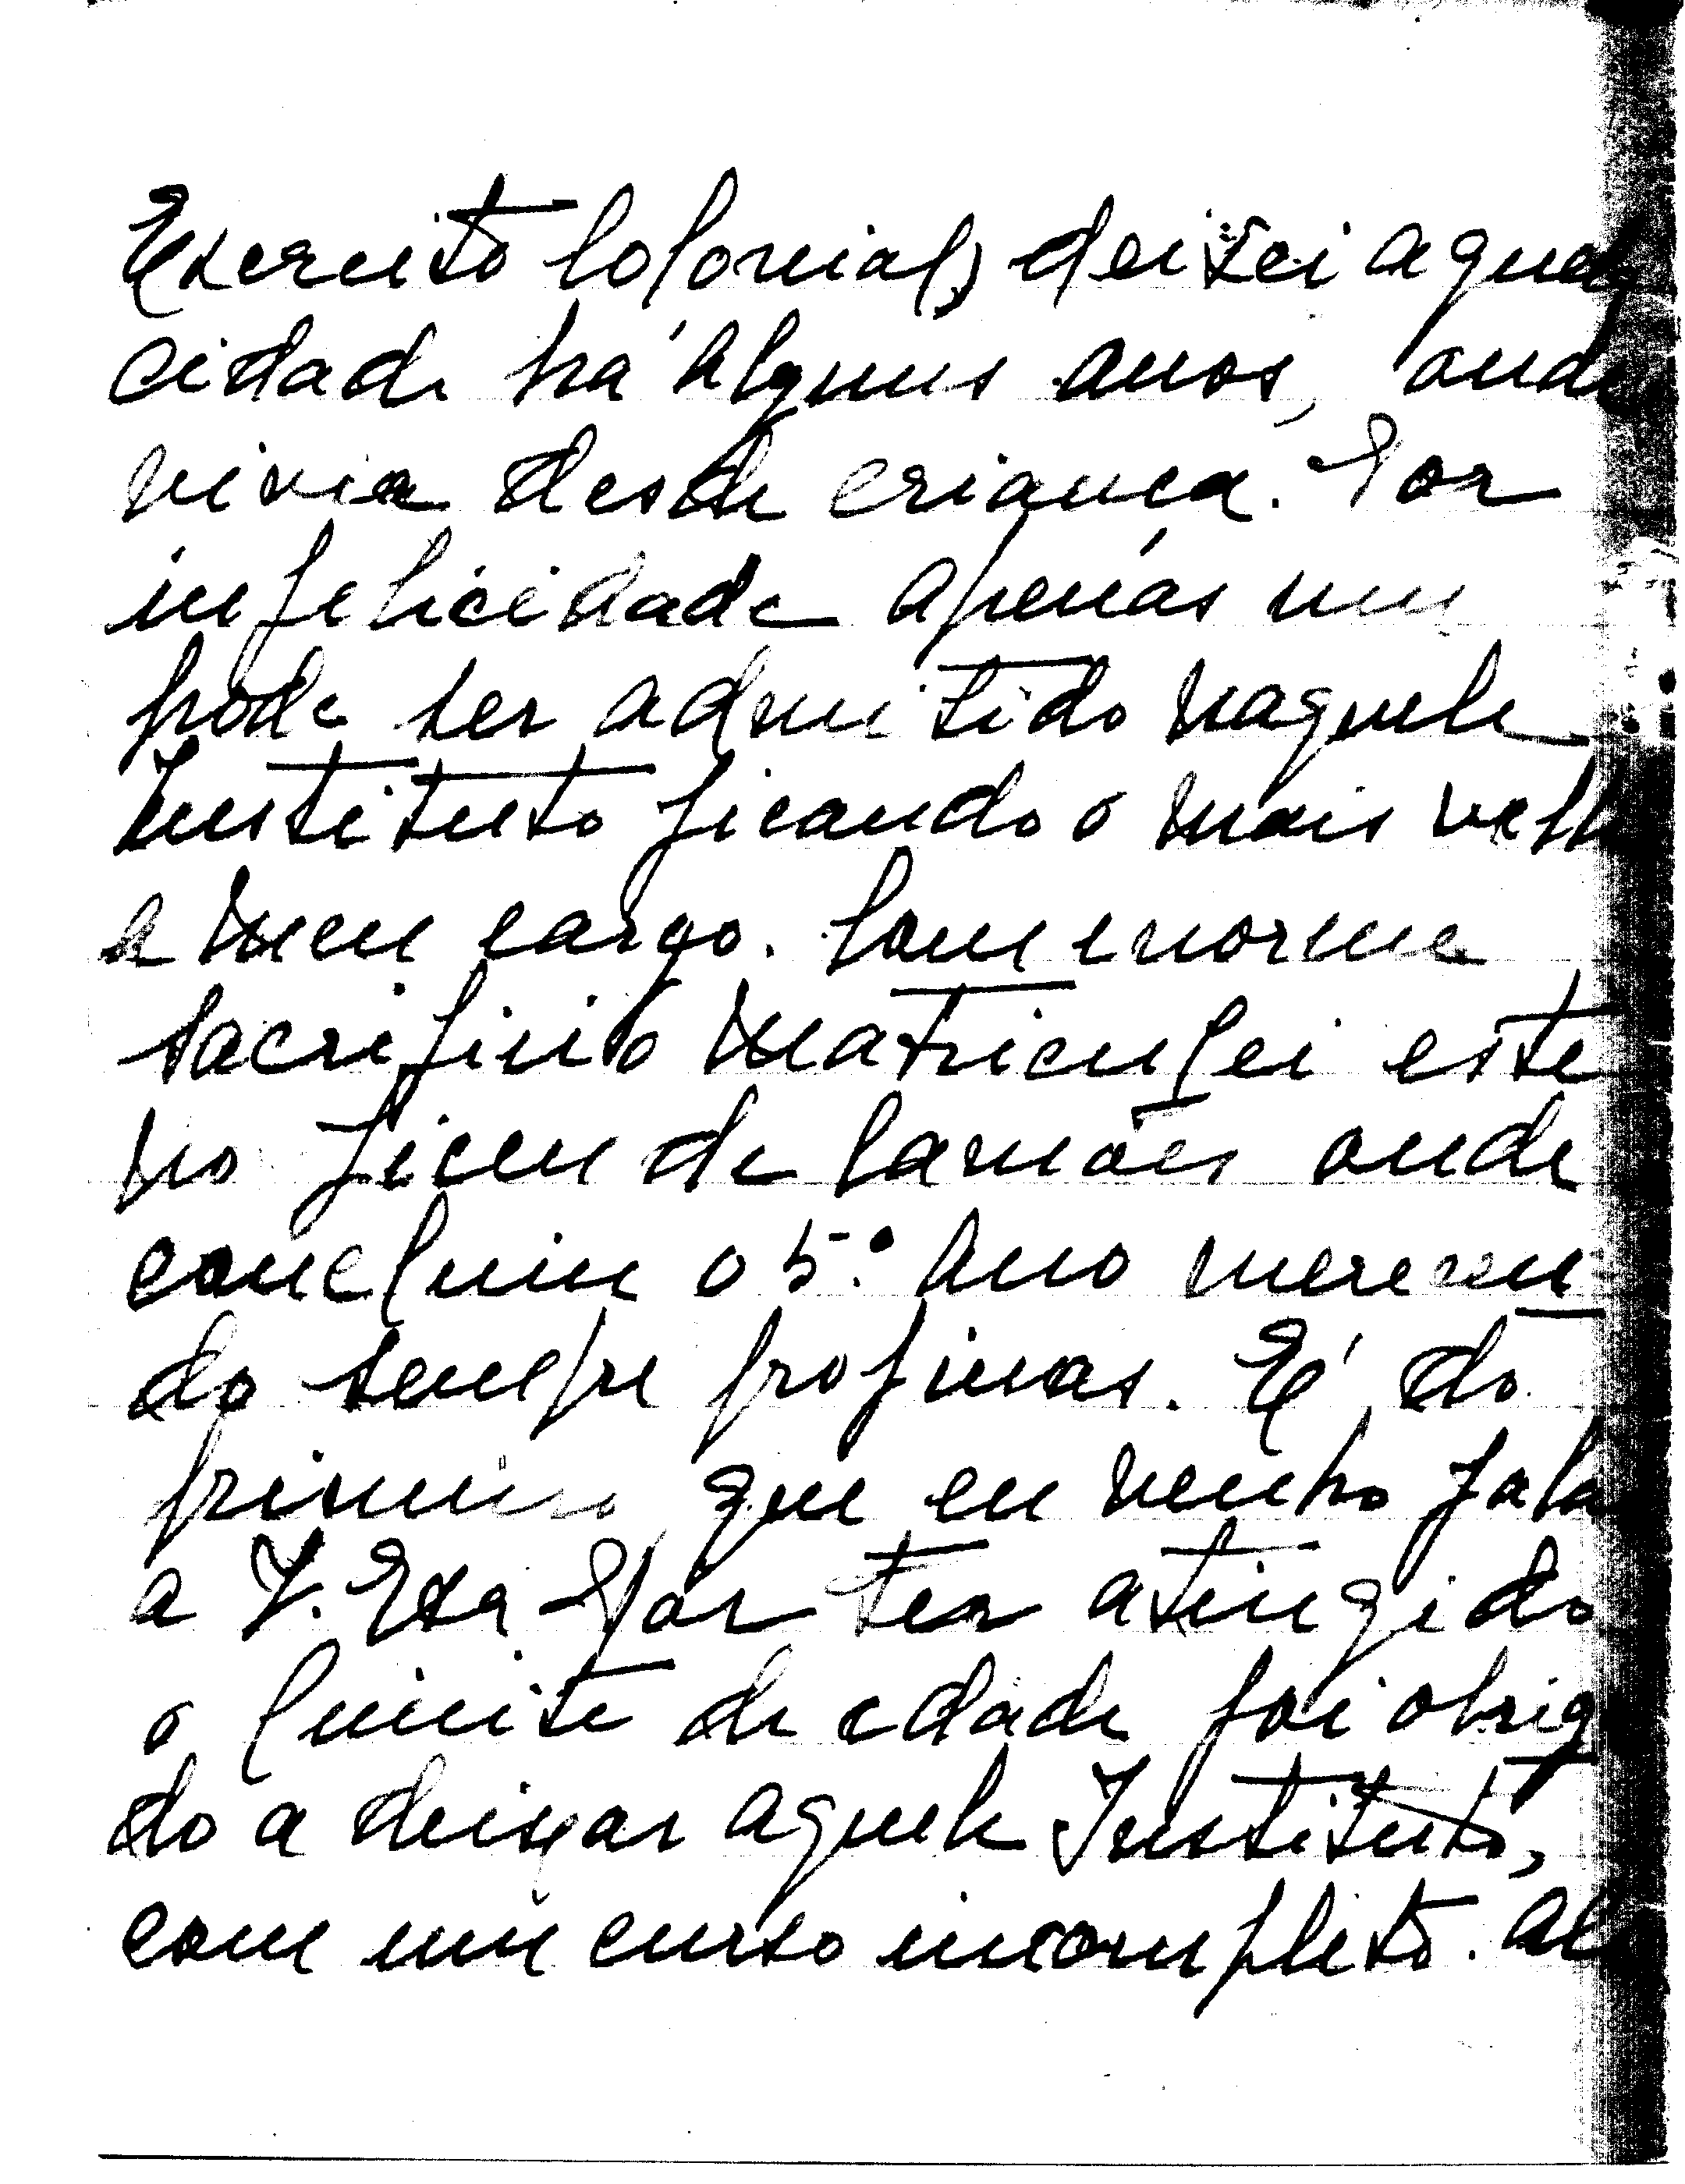 Exercito Colonial, deixei aquel
cidade há alguns anos, onde
vivia desde criança. Por
infelicidade apenas um
pode ser admitido naquele
Instituto ficando o mais velh
a meu cargo. Com enorme
sacrificio matriculei este
no Liceu de Camões onde
concluiu o 5.º Ano merecen
do sempre propinas. É do
primeiro que eu venho fala
a V. Exa Por ter atingido
o limite de edade foi obrig
do a deixar aquele Instituto,
com um curso incompleto.